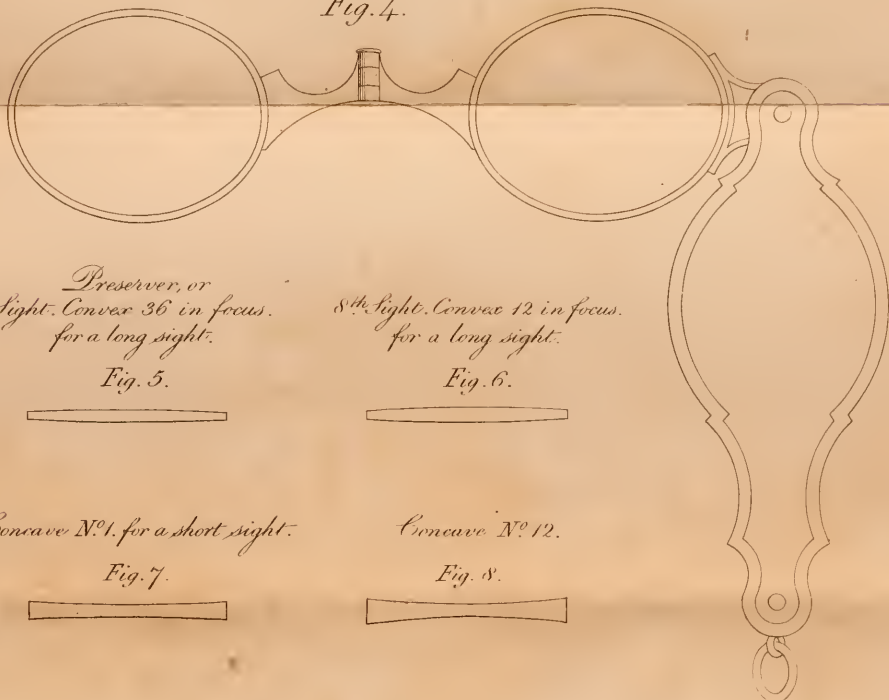 Fig. 4.
Preserver, or
Sight. Convex 36 in focus.
for a long sight.
Fig. 5.
8th Sight. Convex 12 in focus.
for a long sight.
Fig. 6.
Concave No. 1. for a short sight.
Fig. 7.
Concave No. 12.
Fig. 8.